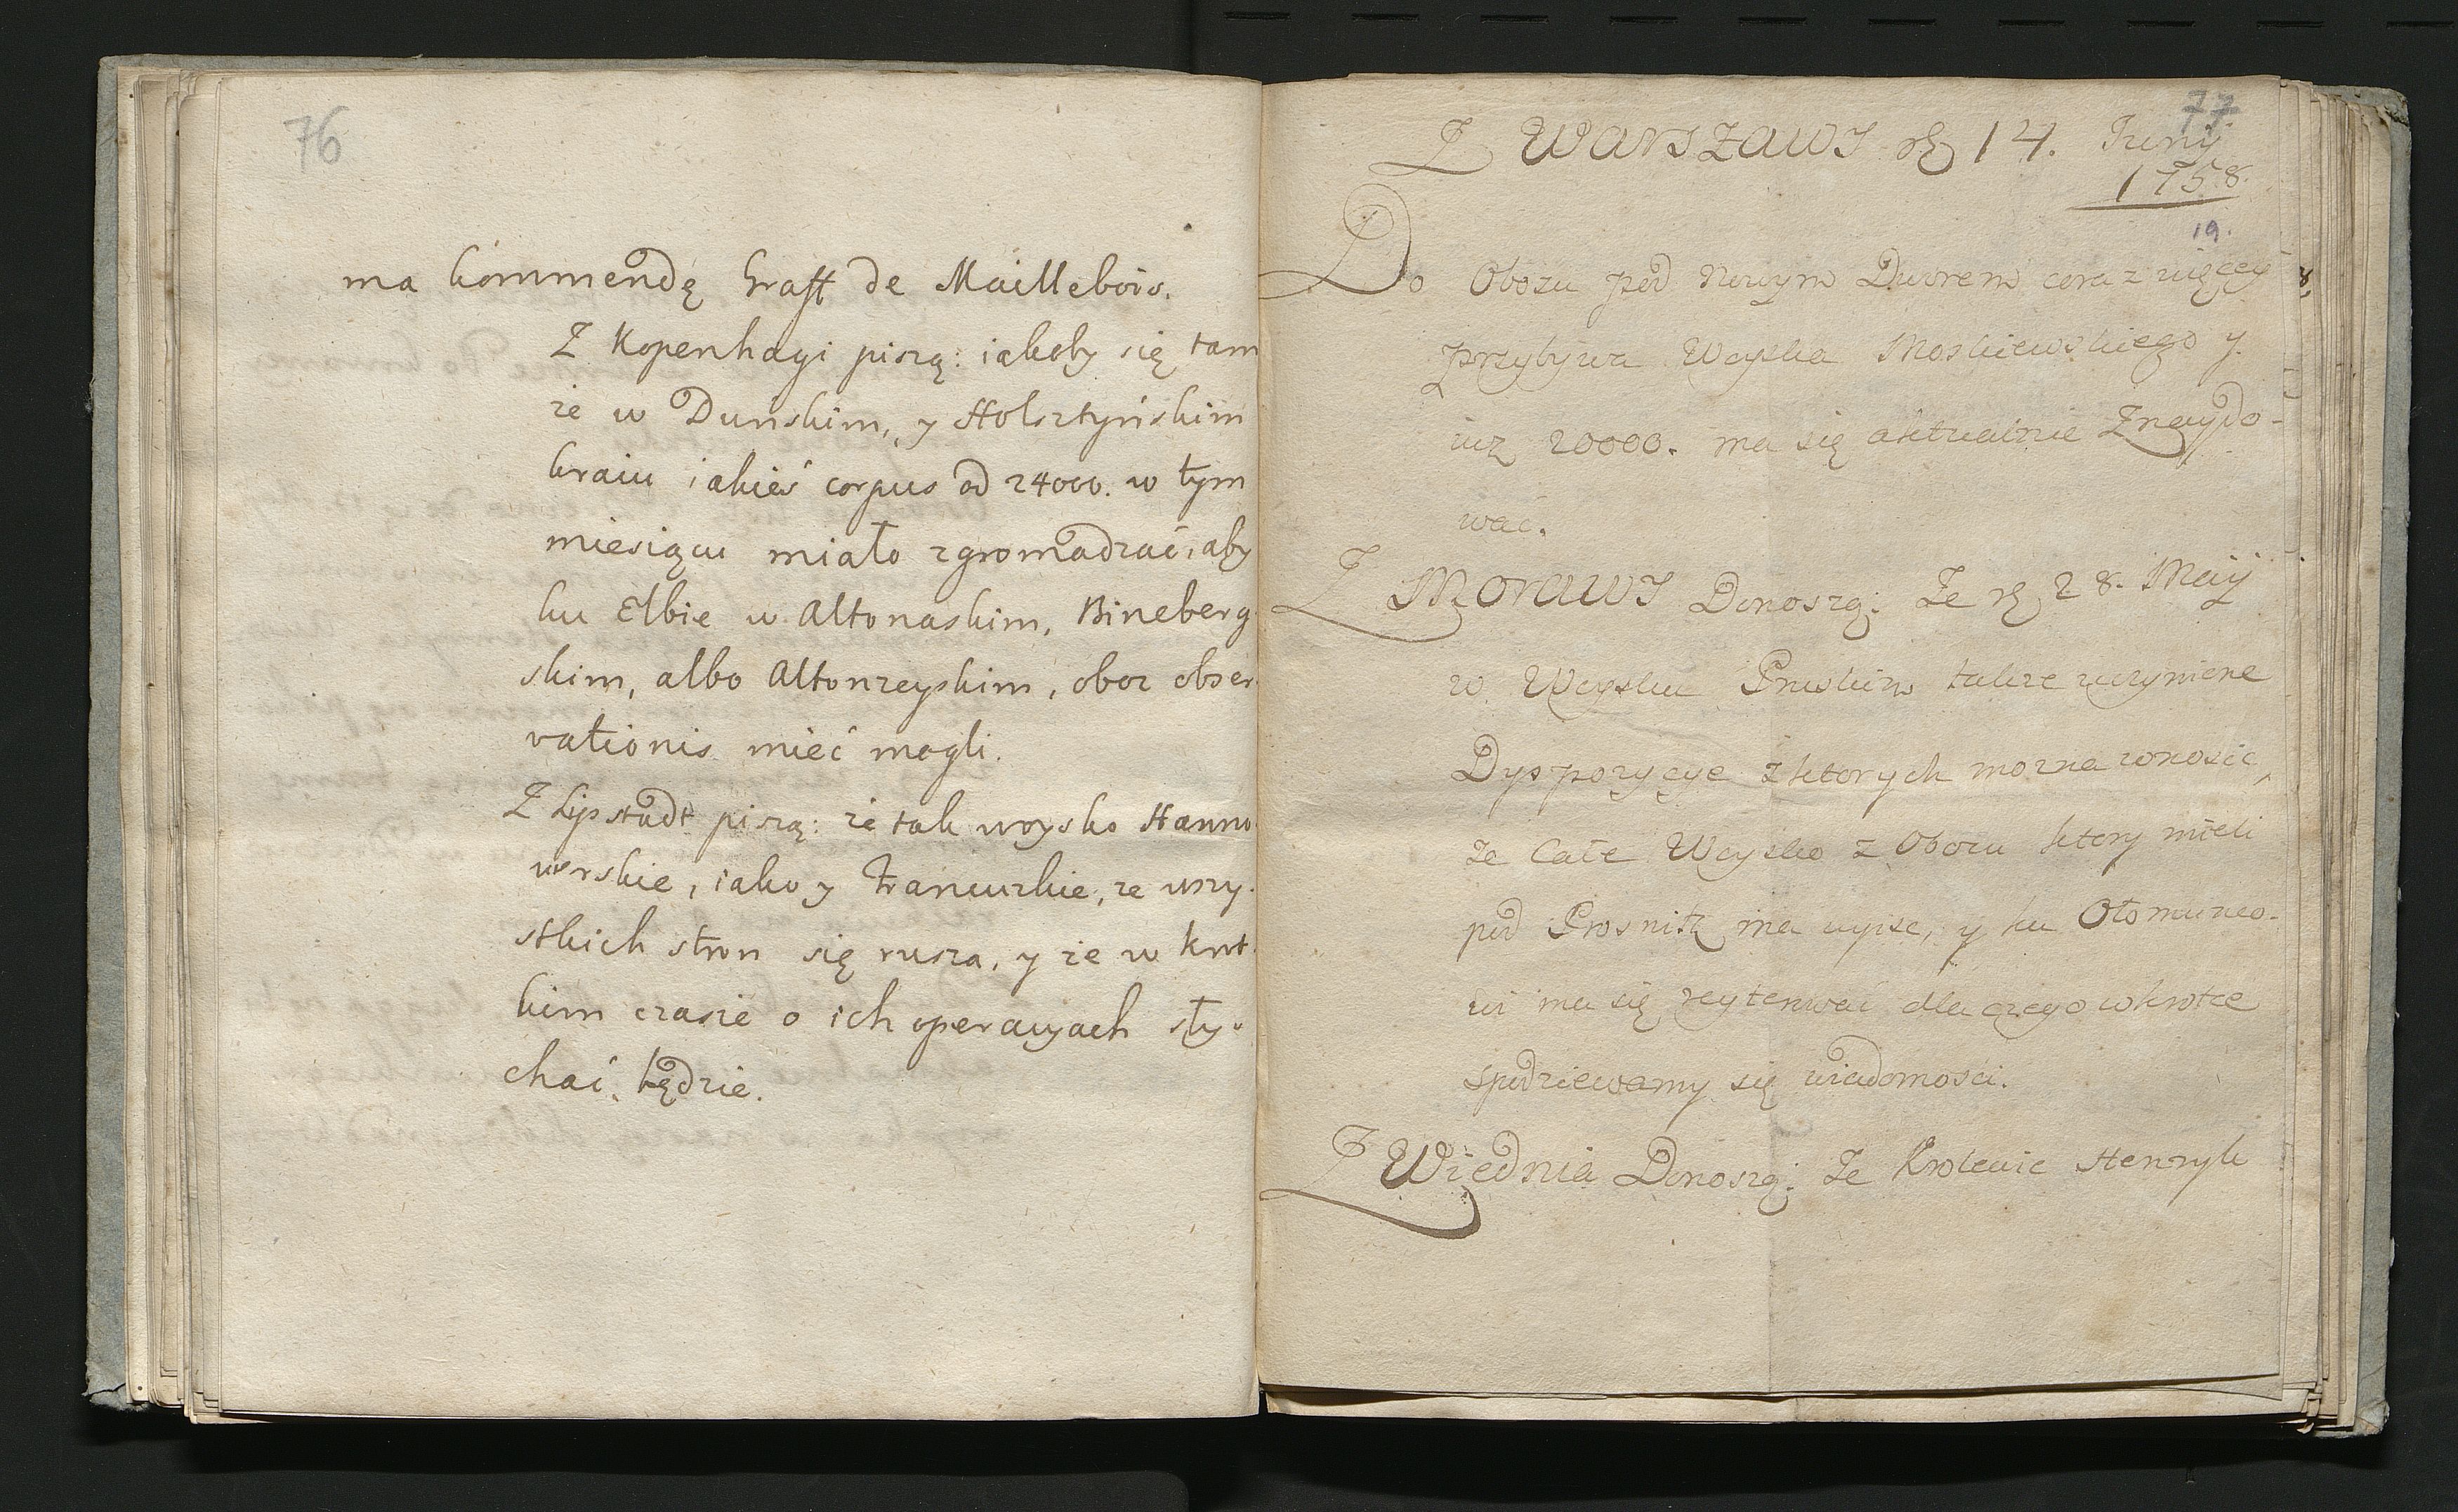 76
ma kommendę Graff de Maillebois.
Z Kopenhagi piszą: iakoby się tam
że w Dunskim, y Holsztyńskim
kraiu iakieś corpus od 24000. w tym
miesiącu miało zgromadzać, aby
ku Elbie w Altonaskim, Bineberg
skim, albo Altonzeyskim, oboz obser
vationis mieć mogli.
Z Lipstadt piszą: że tak woysko Hanno
werskie, iako y Francuzkie, ze wszy
stkich stron się rusza, y że w krot
kim czasie o ich operacyach sły
chać będzie.
77
Z Warszawy 14. Juny
1758.
19.
Do Obozu pod Nowym Dworem coraz więcey
przybywa Woyska Moskiewskiego y
iuz 20000. ma się aktualnie Znaydo-
wać.
Z Morawy Donoszą: Ze 28. Maij
w Woysku Pruskim takze uczynione
Dyspozycye z ktorych mozna wnosic,
ze Całe Woysko z Obozu ktory mieli
pod Prosnitz ma wyisc, y ku Ołomunco-
wi ma się dla czego wkrotce
spodziewamy się wiadomosci.
Z Wiednia Donoszą: Ze Krolewic Henryk